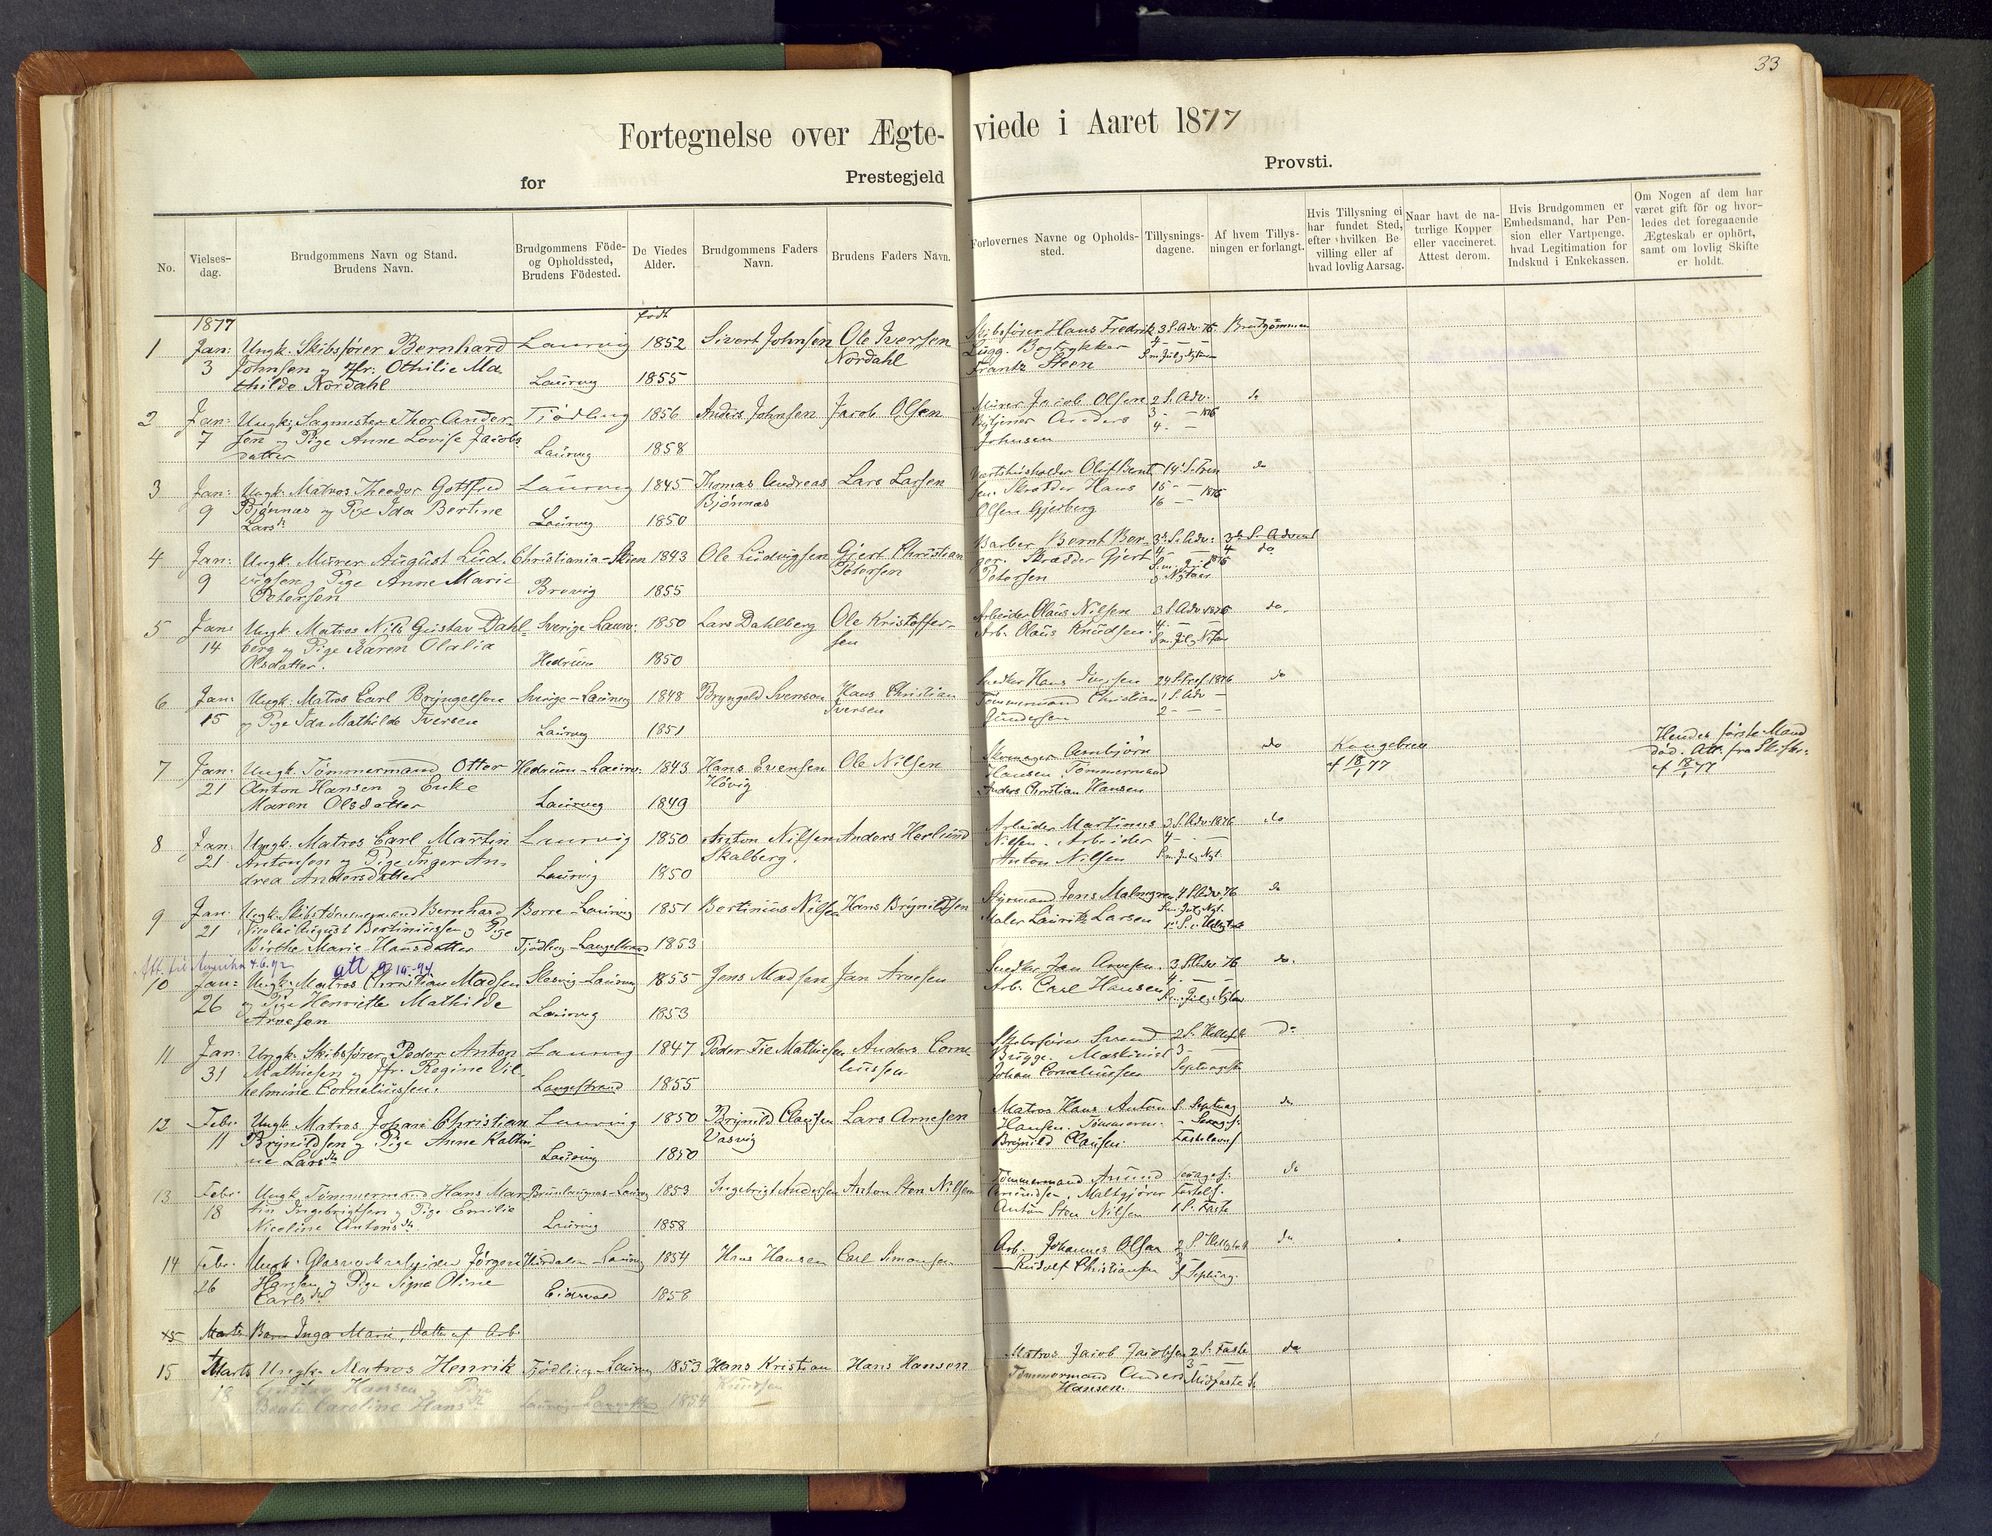 33
Fortegnelse over Ægte-viede i Aaret 1877
for Prestegjeld Provsti.
No.
Vielses-
dag.
Brudgommens Navn og Stand.
Brudens Navn.
Brudgommens Föde-
og Opholdssted,
Brudens Födested.
De Viedes
Alder.
Brudgommens Faders
Navn.
Brudens Faders Navn.
Forlovernes Navne og Opholds-
sted.
Tillysnings-
dagene.
Af hvem Tillys-
ningen er forlangt.
Hvis Tillysning ei
har fundet Sted,
efter hvilken Be-
villing eller af
hvad lovlig Aarsag.
Naar havt de na-
turlige Kopper
eller vaccineret.
Attest derom.
Hvis Brudgommen er
Embedsmand, har Pen-
sion eller Vartpenge,
hvad Legitimation for
Indskud i Enkekassen.
Om Nogen af dem har
været gift för og hvor-
ledes det foregaaende
Ægteskab er ophört,
samt om lovlig Skifte
er holdt.
1877 født
1 Jan: Ungk. Skibsfører Bernhard Laurvig 1852 Sivert Johnsen Ole Iversen Skibsfører Hans Fredrik 3 S. Adv. 76. Brudgommen
3 Johnsen og Jfr: Othilie Ma Nordahl Bugg. Bogtrykker 4 — —
thilde Nordahl Laurvig 1855 Frantz Steen S. m. Jul & Nytaar
2 Jan: Ungk. Sagmester Thor Ander- Tjødling 1856 Anders Johnsen Jacob Olsen Murer Jacob Olsen 2 S. Adv. do
7 sen og Pige Anne Lovise Jacobs Anders 3 — — 1876
datter Laurvig 1858 Johnsen 4 — —
3 Jan: Ungk. Matros Theodor Gottfred Laurvig 1845 Thomas Andreas Lars Larsen Vertshusholder Oluf Bernt 14 S. Tren do
9 Bjønnæs og Pige Ida Bertine Bjønnæs sen. Skrædder Hans 15 — — 1876
Larsdr Laurvig 1850 Olsen Gjerberg 16 — —
4 Jan: Ungk. Murer August Lud- Christiania-Skien 1843 Ole Ludvigsen Gjert Christian Barber Bernt Ber- 3 S. Adv: 3die S. Advent
9 vigsen og Pige Anne Marie Petersen ger. Skrædder Gjert 4 — 1876 do
Petersen Brevig 1855 Petersen & Nytaar
5 Jan: Ungk. Matros Nils Gustav Dahl- Sverige-Laurv: 1850 Lars Dahlberg Ole Kristoffer- Arbeider Olaus Nilsen 3 S. Adv 1876 do.
14 berg og Pige Karen Olalia sen Arb. Olaus Knudsen. 4 — —
Olsdatter. Hedrum 1850
6 Jan: Ungk. Matros Carl Bryngelsen Sverige-Laurvig 1848 Bryngeld Svenson Hans Christian Snedker Hans Iversen 24 S. Tref. 1876 do
15 og Pige Ida Mathilde Iversen Iversen Tømmermand Christian 1 S. Adv —
Laurvig 1851 Gundersen 2 — —
7 Jan: Ungk. Tømmermand Otter Hedrum-Laurv: 1843 Hans Evensen Ole Nilsen Skomager Arnbjørn do Kongebrev Hendes første Mand
21 Anton Hansen og Enke Høvig Hansen. Tømmermand af 18/1 77 død. Att. fra Skifter:
Maren Olsdatter Laurvig 1849 Anders Christian Hansen af 18/1 77
8 Jan: Ungk. Matros Carl Martin Laurvig 1850 Anton Nilsen Anders Herlund Arbeider Martinus 3 S. Adv 1876 do
21 Antonsen og Pige Inger An- Skalberg. Nilsen. Arbeider 4 — —
drea Andersdatter Laurvig 1850 Anton Nilsen S. m. Jul & Nyt.
9 Jan: Ungk. Skibstømmermand Bernhard Borre-Laurvig 1851 Bertinius Nilsen Hans Brynildsen Styrmand Jens Malmgren 4 S. Adv. 76 do
21 Nicolai August Bertiniussen og Pige Maler Laurits Larsen S. m. Jul & Nyt.
Birthe Marie Hansdatter Tjødling-Langestrand 1853
Att. til Amerika 4.6.92 att 9-10-94
10 Jan: Ungk. Matros Christian Madsen Slesvig-Laurvig 1855 Jens Madsen Jan Arvesen Snedker Jan Arvesen. 3 S. Adv. 76 do.
26 og Pige Henriette Mathilde Arb. Carl Hansen 4 —
Arvesen Laurvig 1853 S. m. Jul & Nytaar
11 Jan: Ungk. Skibsfører Peder Anton Laurvig 1847 Peder Fie Mathiesen Anders Corne- Skibsfører Svend 2 S. Hell do
31 Mathiesen og Jfr. Regine Vil- liussen Bugge. Maskinist 3 —
helmine Corneliussen. Langestrand 1855 Johan Corneliussen Septuagest
12 Febr. Ungk. Matros Johan Christian Laurvig 1850 Brynild Clausen Lars Arnesen Matros Hans Anton S. Septuag do
11 Brynildsen og Pige Anne Kathri- Vasvig Hansen. Tømmerm. — Sexag.
ne Larsdtr Laurvig 1850 Brynild Clausen. Fastelavns
13 Febr. Ungk. Tømmermand Hans Mar- Brunlaugnæs-Laurvig 1853 Ingebrigt Andersen Anton Sten Nilsen Tømmermand Amund Sexages: do
18 tin Ingebrigtsen og Pige Emilie Amundsen. Maltgjører Fastel.
Nicoline Antonsdtr Laurvig 1858 Anton Sten Nilsen 1 S. Faste
14 Febr. Ungk. Glasværksarbeider Jørgen -Laurvig 1854 Hans Hansen Carl Simonsen Arb. Johannes Olsen 2 S. do
26 Hansen og Pige Signe Oline — Rudolf Christiansen 3
Carlsdtr Eidsvold 1858 S. Septuag.
15 Marts Barn Inga Marie, Datter af Arb.
15 Marts Ungk. Matros Henrik Tjødling-Laurvig 1853 Hans Kristian Hans Hansen Matros Jacob Jacobsen 2 S. Faste do
18 Gustav Hansen og Pige Knudsen Tømmermand Anders 3 — —
Beate Caroline Hansdtr Laurvig-Langestrand 1854 Hansen. Midfaste S.